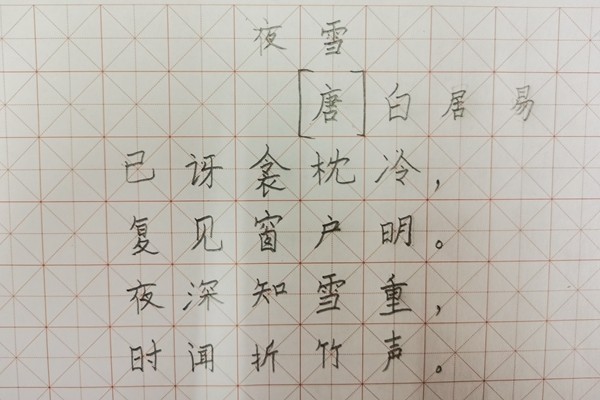 夜雪
[唐]白居易
已讶衾枕冷，
复见窗户明。
夜深知雪重，
时闻折竹声。